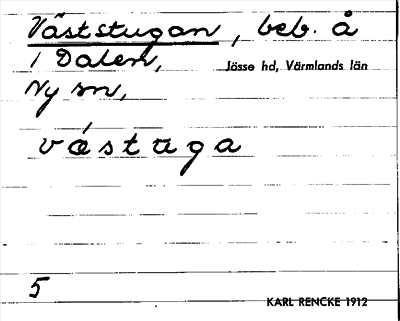 Väststugan, beb. å
1 Dalen, Jösse hd, Värmlands län
Ny sn,
vǽstuga
5
KARL RENCKE 1912